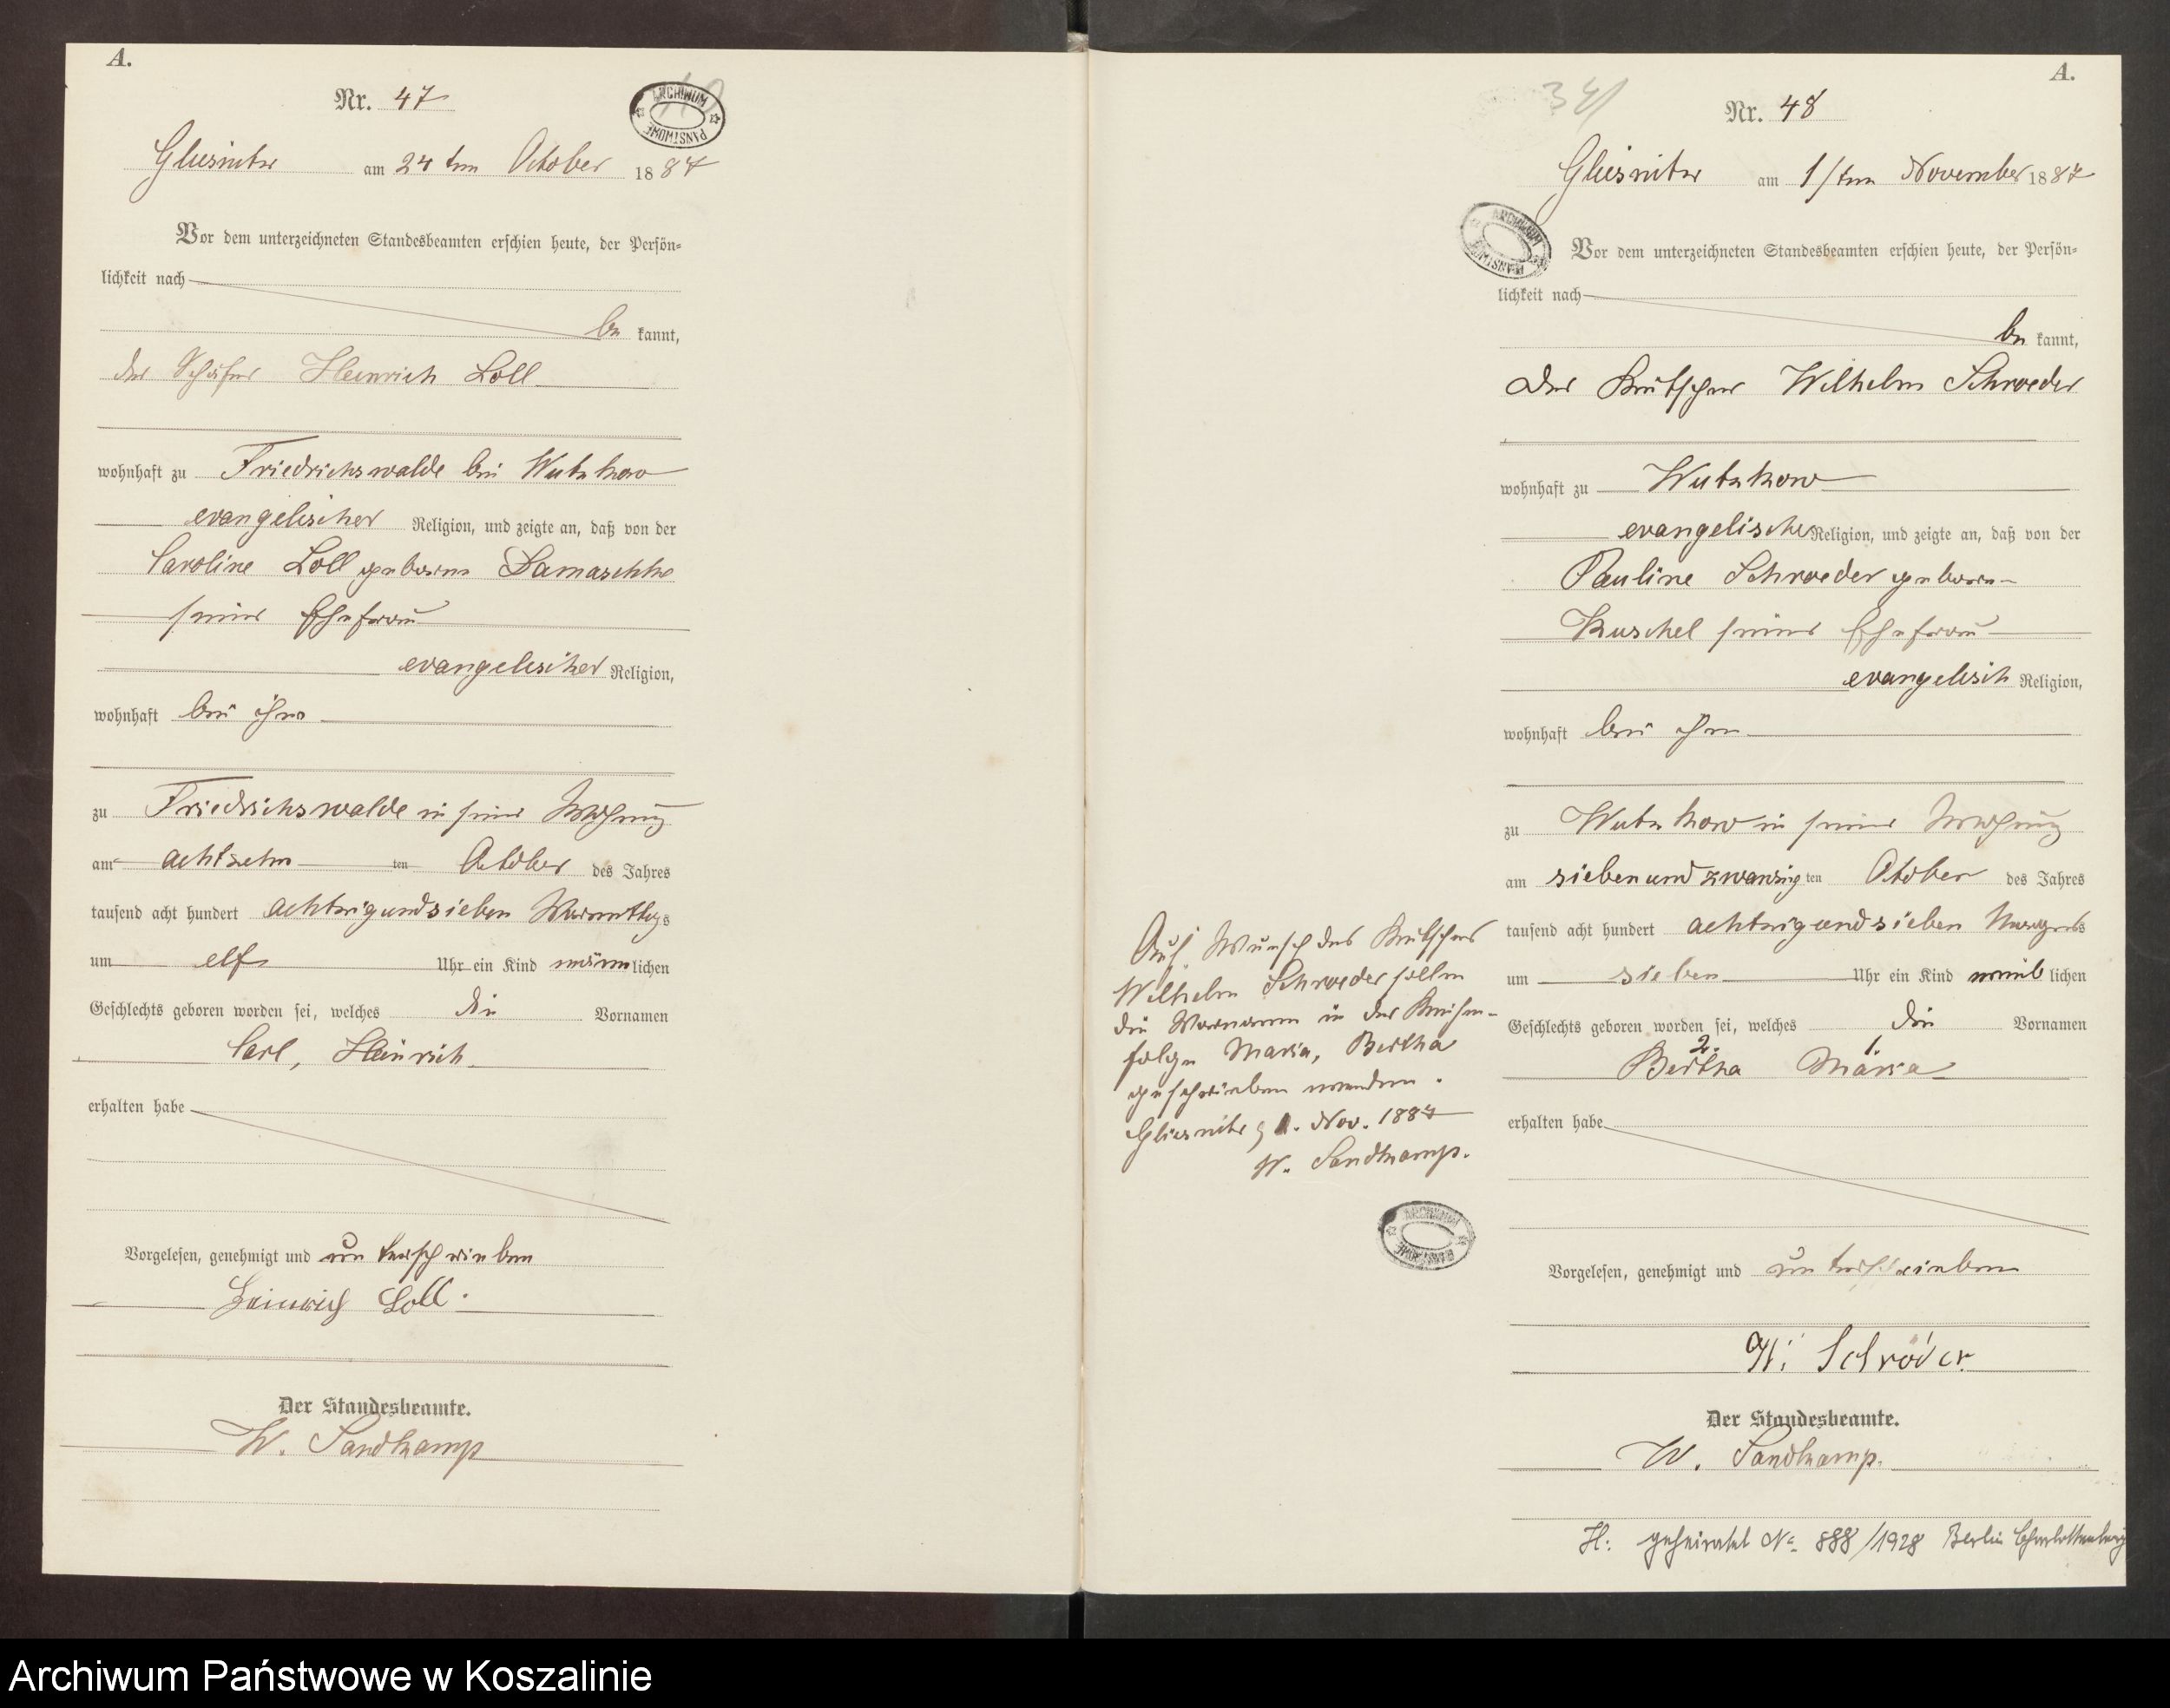 A.
Nr. 47
ARCHIWUM PAŃSTWOWE
Gliesnitz am 24 ten October 1887
Vor dem unterzeichneten Standesbeamten erschien heute, der Persön-
lichkeit nach
be kannt,
der Schäfer Heinrich Loll
wohnhaft zu Friedrichswalde bei Wutzkow
evangelischer Religion, und zeigte an, daß von der
Caroline Loll geborene Damaschke
seiner Ehefrau
evangelischer Religion,
wohnhaft bei ihm
zu Friedrichswalde in seiner Wohnung
am achtzehn ten October des Jahres
tausend acht hundert achtzigundsieben Vormittags
um elf Uhr ein Kind männlichen
Geschlechts geboren worden sei, welches die Vornamen
Carl, Heinrich
erhalten habe
Vorgelesen, genehmigt und unterschrieben
Heinrich Loll.
Der Standesbeamte.
W. Sandkamp
A.
341
Nr. 48
Gliesnitz am 1/ten November 1887
ARCHIWUM PAŃSTWOWE
Vor dem unterzeichneten Standesbeamten erschien heute, der Persön-
lichkeit nach
be kannt,
Der Kutscher Wilhelm Schroeder
wohnhaft zu Wutzkow
evangelischer Religion, und zeigte an, daß von der
Pauline Schroeder geborene
Kuschel seiner Ehefrau
evangelisch Religion,
wohnhaft bei ihm
zu Wutzkow in seiner Wohnung
am siebenundzwanzig ten October des Jahres
tausend acht hundert achtzigundsieben Morgens
um sieben Uhr ein Kind weiblichen
Geschlechts geboren worden sei, welches die Vornamen
2. 1.
Bertha Maria
erhalten habe
Auf Wunsch des Kutschers
Wilhelm Schroeder sollen
die Vornamen in der Reihen-
folge Maria, Bertha
geschrieben werden.
Gliesnitz 1. Nov. 1887
W. Sandkamp.
ARCHIWUM PAŃSTWOWE
Vorgelesen, genehmigt und unterschrieben
W. Schröder
Der Standesbeamte.
W. Sandkamp.
H: geheiratet No 888/1928 Berlin Charlottenburg
Archiwum Państwowe w Koszalinie